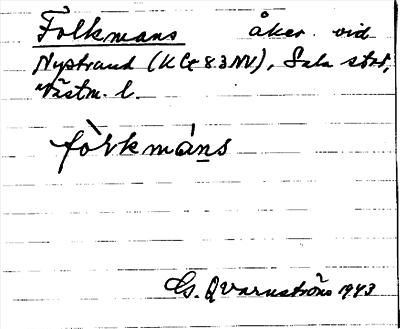 Folkmans åker vid
Nystrand (K Ce 83 NV), Sala stad,
Västm. l.
fòlkmáns
G. Qvarnström 1943